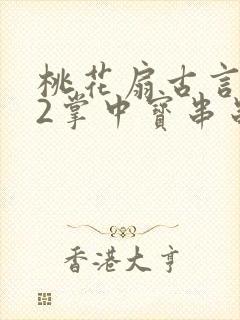 桃花扇古言
2掌中寶串
香港大亨